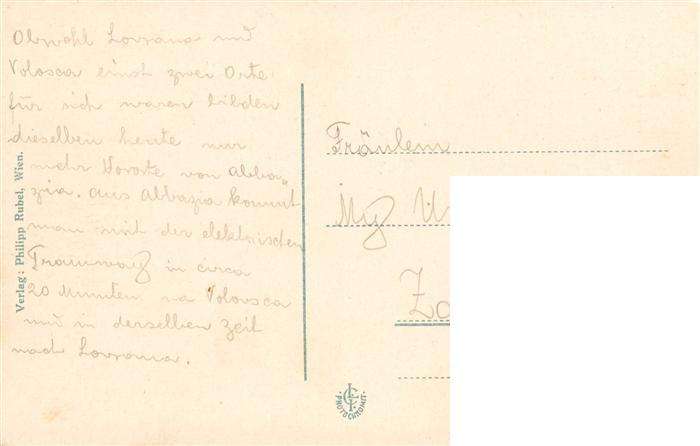 Obzwahl Lovrana und
Volosca einst zwei Orte
für sich waren bilden
dieselben heute nur
mehr Vororte von Abba-
zia. Aus Abbazia kommt
man mit der elektrischen
Tramway in circa
20 Minuten na Volosca
und in derselben Zeit
nach Lovrana.
Verlag: Philipp Rubel, Wien.
Fräulein
PHOTOCHROMIE